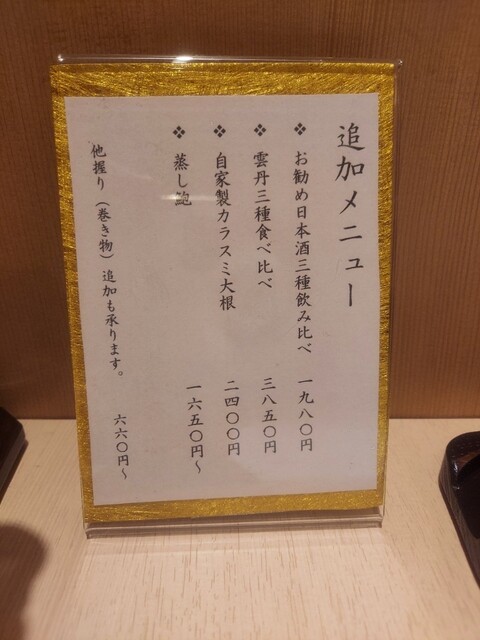 追加メニュー
❖ お勧め日本酒三種飲み比べ 一九八〇円
❖ 雲丹三種食べ比べ 三八五〇円
❖ 自家製カラスミ大根 二四〇〇円
❖ 蒸し鮑 一六五〇円～
他握り（巻き物）追加も承ります。 六六〇円～